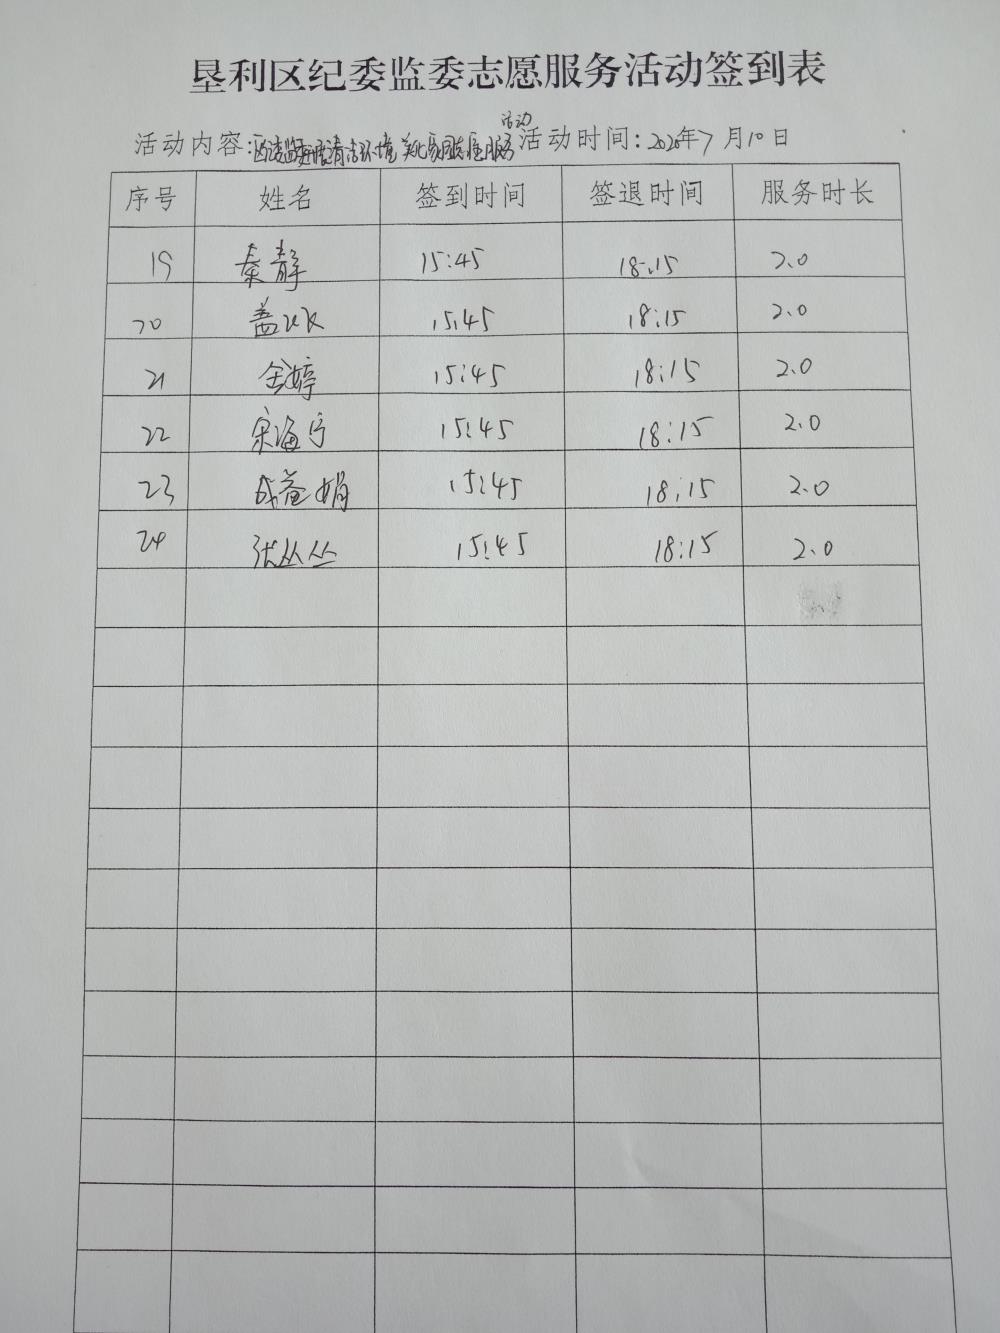 垦利区纪委监委志愿服务活动签到表
活动
活动内容: 清洁环境 美化家园志愿服务 活动时间: 2020年7月10日
序号 姓名 签到时间 签退时间 服务时长
19 秦静 15:45 18:15 2.0
20 盖 15:45 18:15 2.0
21 金婷 15:45 18:15 2.0
22 宋海宁 15:45 18:15 2.0
23 成爱娟 15:45 18:15 2.0
24 张丛丛 15:45 18:15 2.0